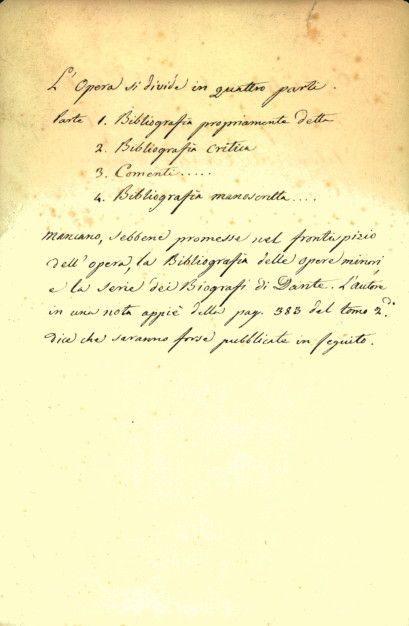 L'Opera si divide in quattro parti.
Parte 1. Bibliografia propriamente detta
2. Bibliografia critica
3. Comenti.....
4. Bibliografia manoscritta....
Mancano, sebbene promesse nel frontispizio
dell'opera, la Bibliografia delle opere minori
e la serie dei Biografi di Dante. L'autore
in una nota appiè della pag. 383 del tomo 2.do
dice che saranno forse pubblicate in seguito.